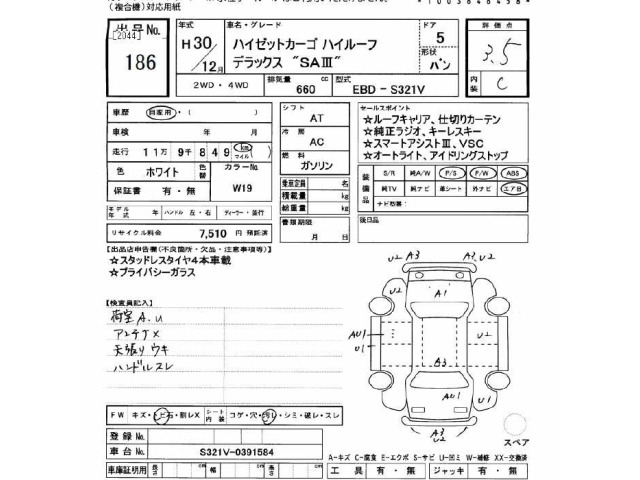 (複合機)対応用紙
出品 No.
[2044]
186
年式
H30/12月
車名・グレード
ハイゼットカーゴ ハイルーフ
デラックス "SAⅢ"
ドア
5
形状
バン
評価点
3.5
内装
C
2WD・4WD
排気量
660 cc
型式
EBD - S321V
車歴
自家用・( )
車検 年 月
走行 11万 9千 849 (km マイル)
色 ホワイト
色替
カラーNo.
W19
保証書 有・無
シフト
AT
冷房
AC
燃料
ガソリン
乗車定員 名
積載量 kg
総重量 kg
セールスポイント
☆ルーフキャリア、仕切りカーテン
☆純正ラジオ、キーレスキー
☆スマートアシストⅢ、VSC
☆オートライト、アイドリングストップ
装備品
S/R 純A/W P/S P/W ABS
純TV 純ナビ 革シート 外ナビ エア B
ナビ型番:
モデル年式 年 ハンドル 左・右 ディーラー・並行
リサイクル料金 7,510 円 預託済
書類期限
月 日
後日品
【出品店申告欄(不良箇所・欠品・注意事項等)】
☆スタッドレスタイヤ4本車載
☆プライバシーガラス
【検査員記入】
荷室A.U
アンテナX
天張りウキ
ハンドルスレ
U2 A3 A3 U2
U2 A1 U2
AU1
U1 U2
A3
AU1 U1
A3
U2
スペア
FW キズ・トビ石・割レX
シート内装
コゲ・穴・汚レ・シミ・破レ・スレ
登録 No.
車台 No. S321V-0391584
A-キズ C-腐食 E-エクボ S-サビ U-凹ミ W-補修 XX-交換済
車庫証明用 長さ cm 幅 cm 高さ cm
工具 有・無 ジャッキ 有・無